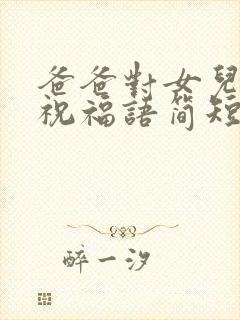 爸爸對女兒
祝福語简短
醉一汐